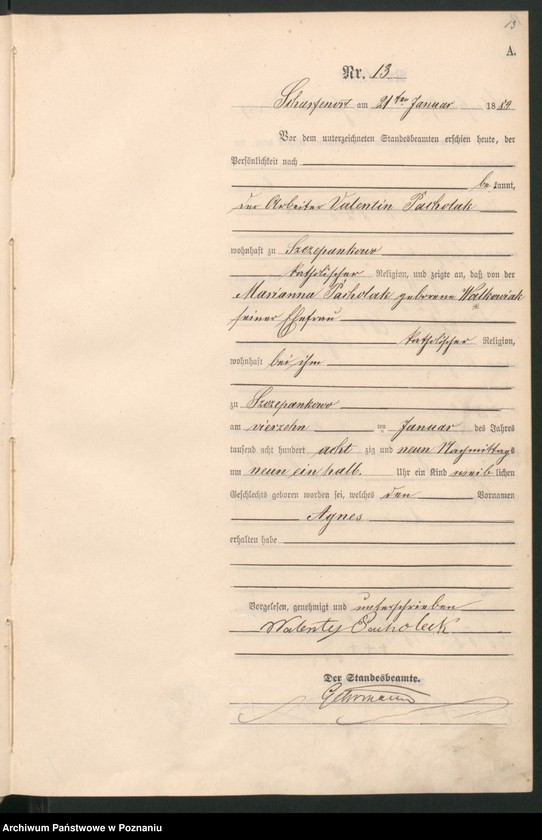 13
A.
Nr. 13
Scharfenort am 21ten Januar 1889
Vor dem unterzeichneten Standesbeamten erschien heute, der
Persönlichkeit nach
be kannt,
der Arbeiter Valentin Pacholak
wohnhaft zu Szczepankowo
katholischer Religion, und zeigte an, daß von der
Marianna Pacholak geborene Walkowiak
seiner Ehefrau
katholischer Religion,
wohnhaft bei ihm
zu Szczepankowo
am vierzehn ten Januar des Jahres
tausend acht hundert acht zig und neun Nachmittags
um neun ein halb Uhr ein Kind weib lichen
Geschlechts geboren worden sei, welches den Vornamen
Agnes
erhalten habe
Vorgelesen, genehmigt und unterschrieben
Walenty Pacholeck
Der Standesbeamte.
Gehrmann
Archiwum Państwowe w Poznaniu